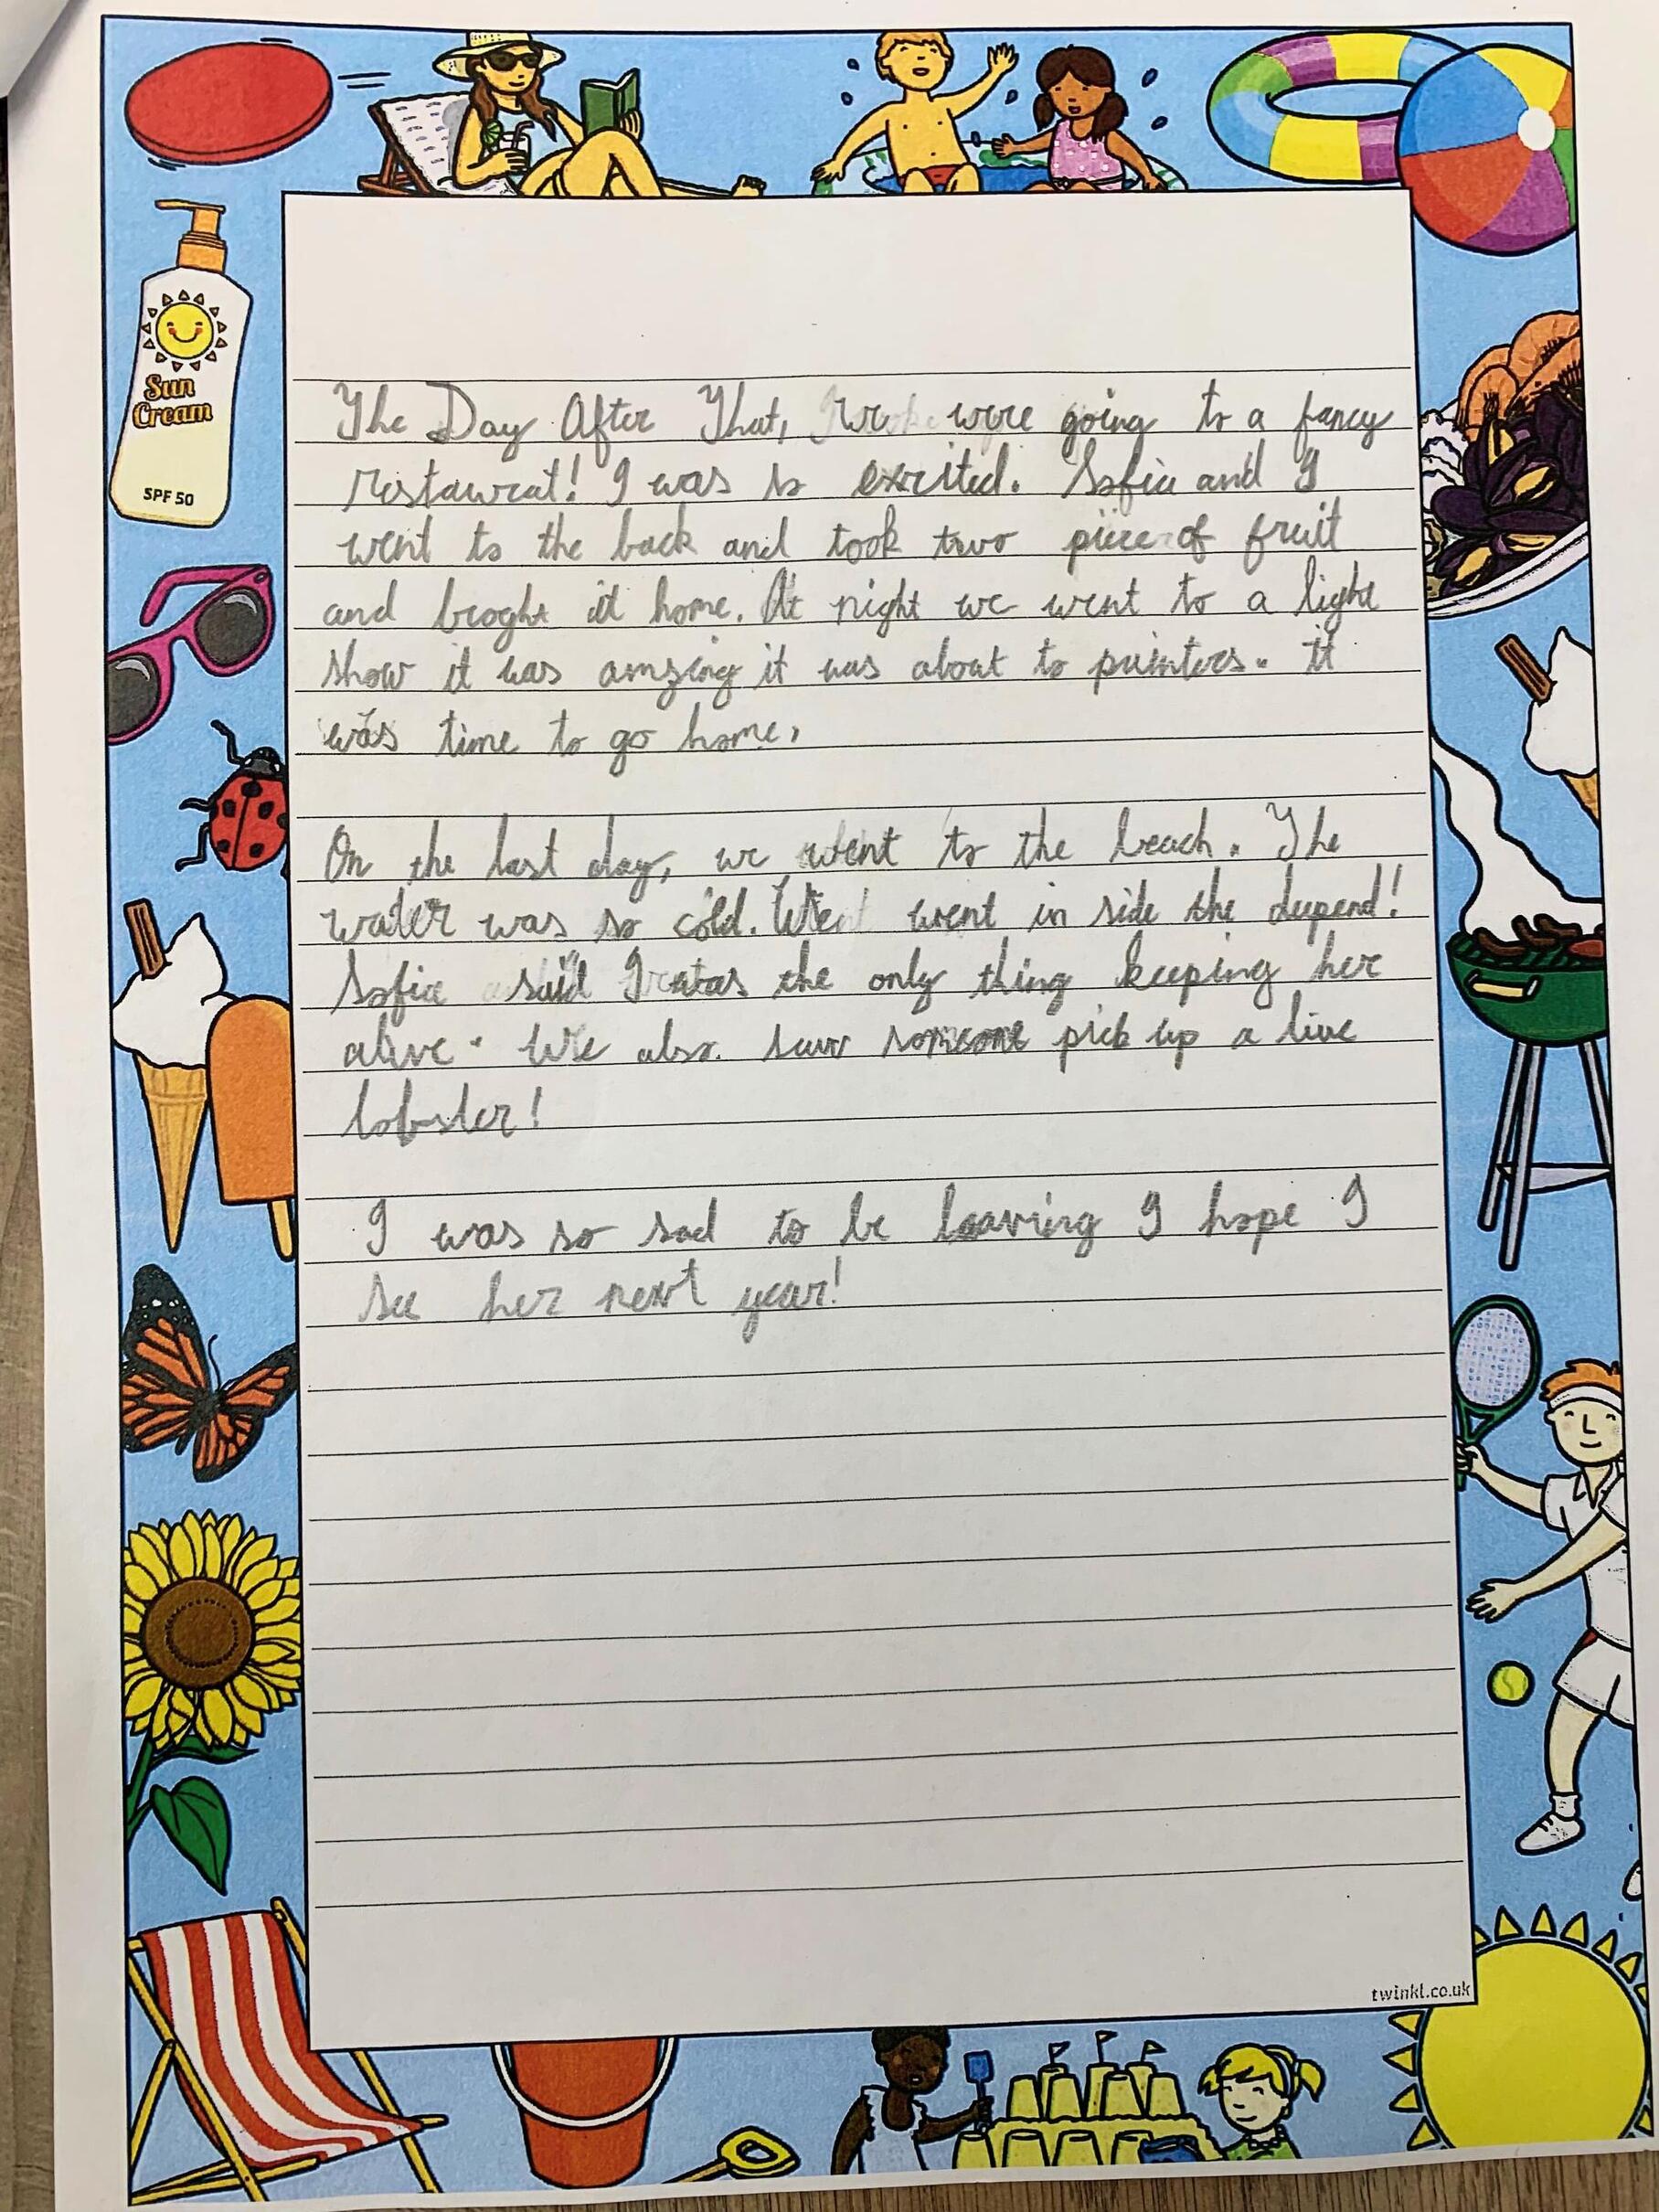 Sun
Cream
SPF 50
The Day After That, we were going to a fancy
restawrat! I was so excited. Sofia and I
went to the back and took two piece of fruit
and broght it home. At night we went to a light
show it was amzing it was about to painters. it
was time to go home.
On the last day, we went to the beach. The
water was so cold. We went in side the deepend!
Sofia said I was the only thing keeping her
alive. We also. saw someone pick up a live
lobster!
I was so sad to be leaving I hope I
see her next year!
twinkl.co.uk